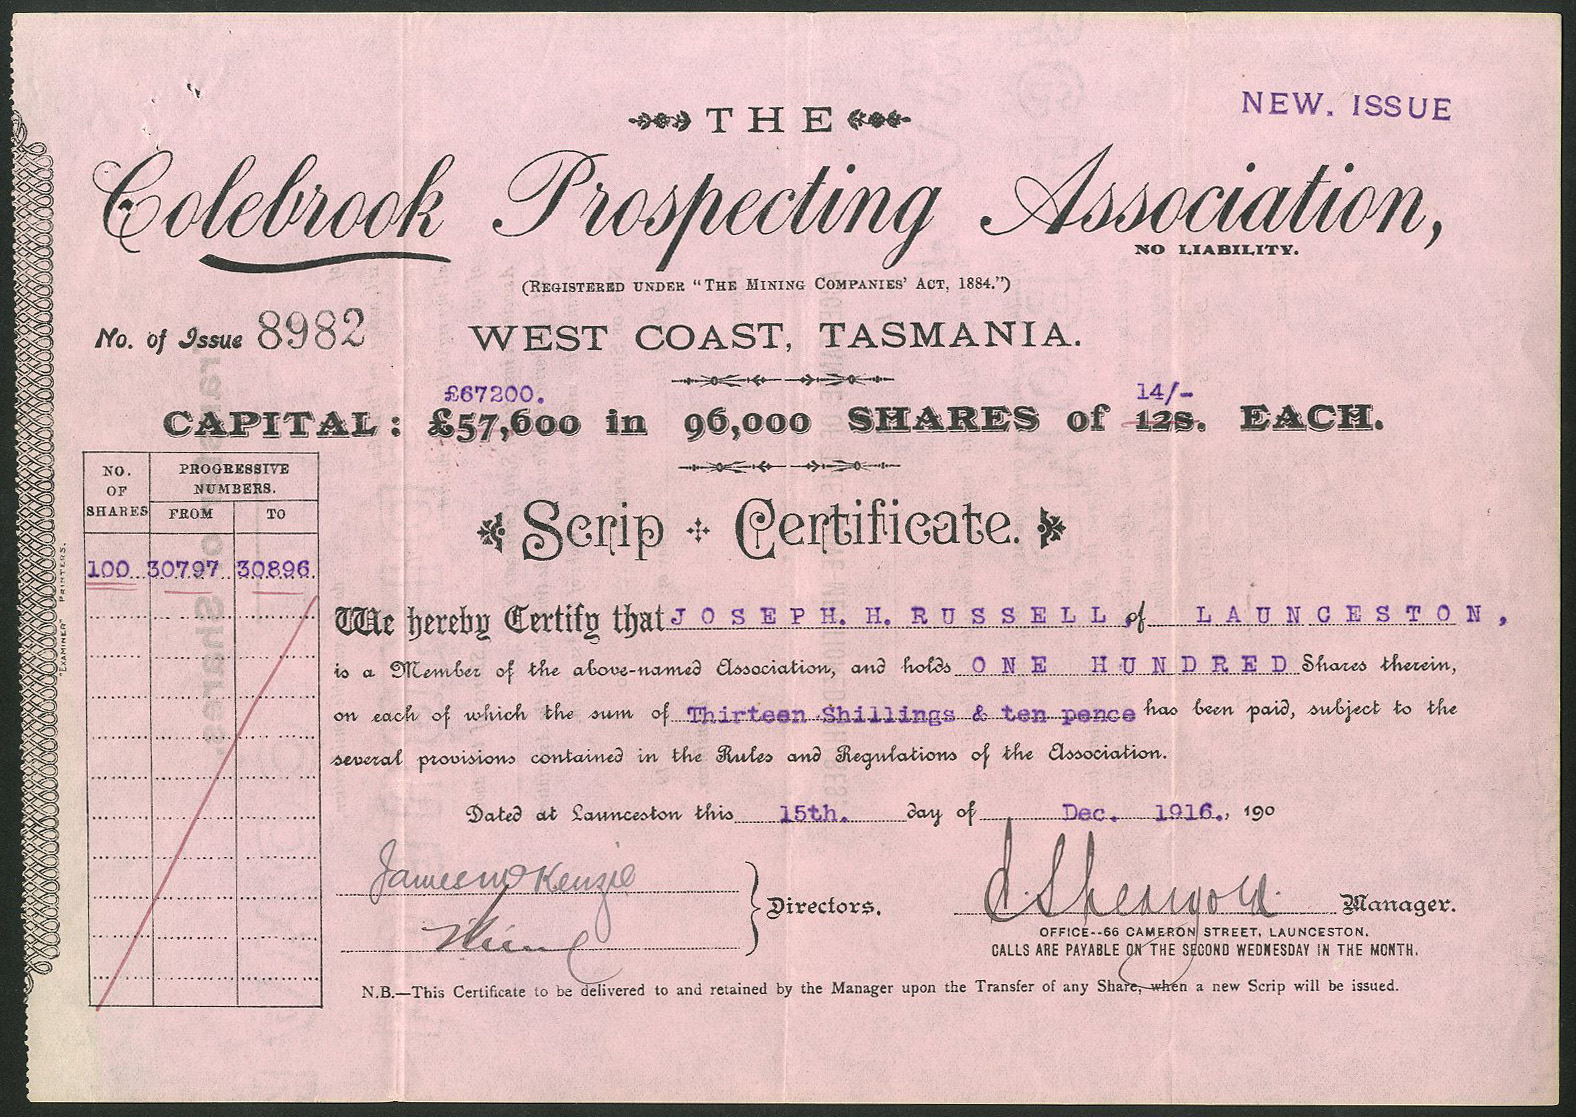 NEW. ISSUE
THE
Colebrook Prospecting Association,
NO LIABILITY.
(REGISTERED UNDER "THE MINING COMPANIES' ACT, 1884.")
No. of Issue 8982
WEST COAST, TASMANIA.
£67200. 14/-
CAPITAL: £57,600 in 96,000 SHARES of 12s. EACH.
NO. OF SHARES
PROGRESSIVE NUMBERS.
FROM TO
100 30797 30896
"EXAMINER" PRINTERS.
Scrip Certificate.
We hereby Certify that JOSEPH. H. RUSSELL, of LAUNCESTON,
is a Member of the above-named Association, and holds ONE HUNDRED Shares therein,
on each of which the sum of Thirteen Shillings & ten pence has been paid, subject to the
several provisions contained in the Rules and Regulations of the Association.
Dated at Launceston this 15th. day of Dec. 1916., 190
James McKenzie
Directors.
Manager.
OFFICE--66 CAMERON STREET, LAUNCESTON.
CALLS ARE PAYABLE ON THE SECOND WEDNESDAY IN THE MONTH.
N.B.—This Certificate to be delivered to and retained by the Manager upon the Transfer of any Share, when a new Scrip will be issued.